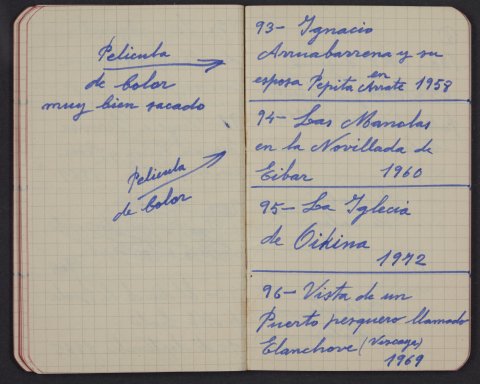 Pelicula
de Color
muy bien sacado
Pelicula
de Color
93- Ignacio
Arruabarrena y su
esposa Pepita en Arrate 1958
94- Las Manolas
en la Novillada de
Eibar 1960
95- La Iglecia
de Oikina
1972
96- Vista de un
Puerto pesquero llamado
Elanchove (Viscaya)
1969